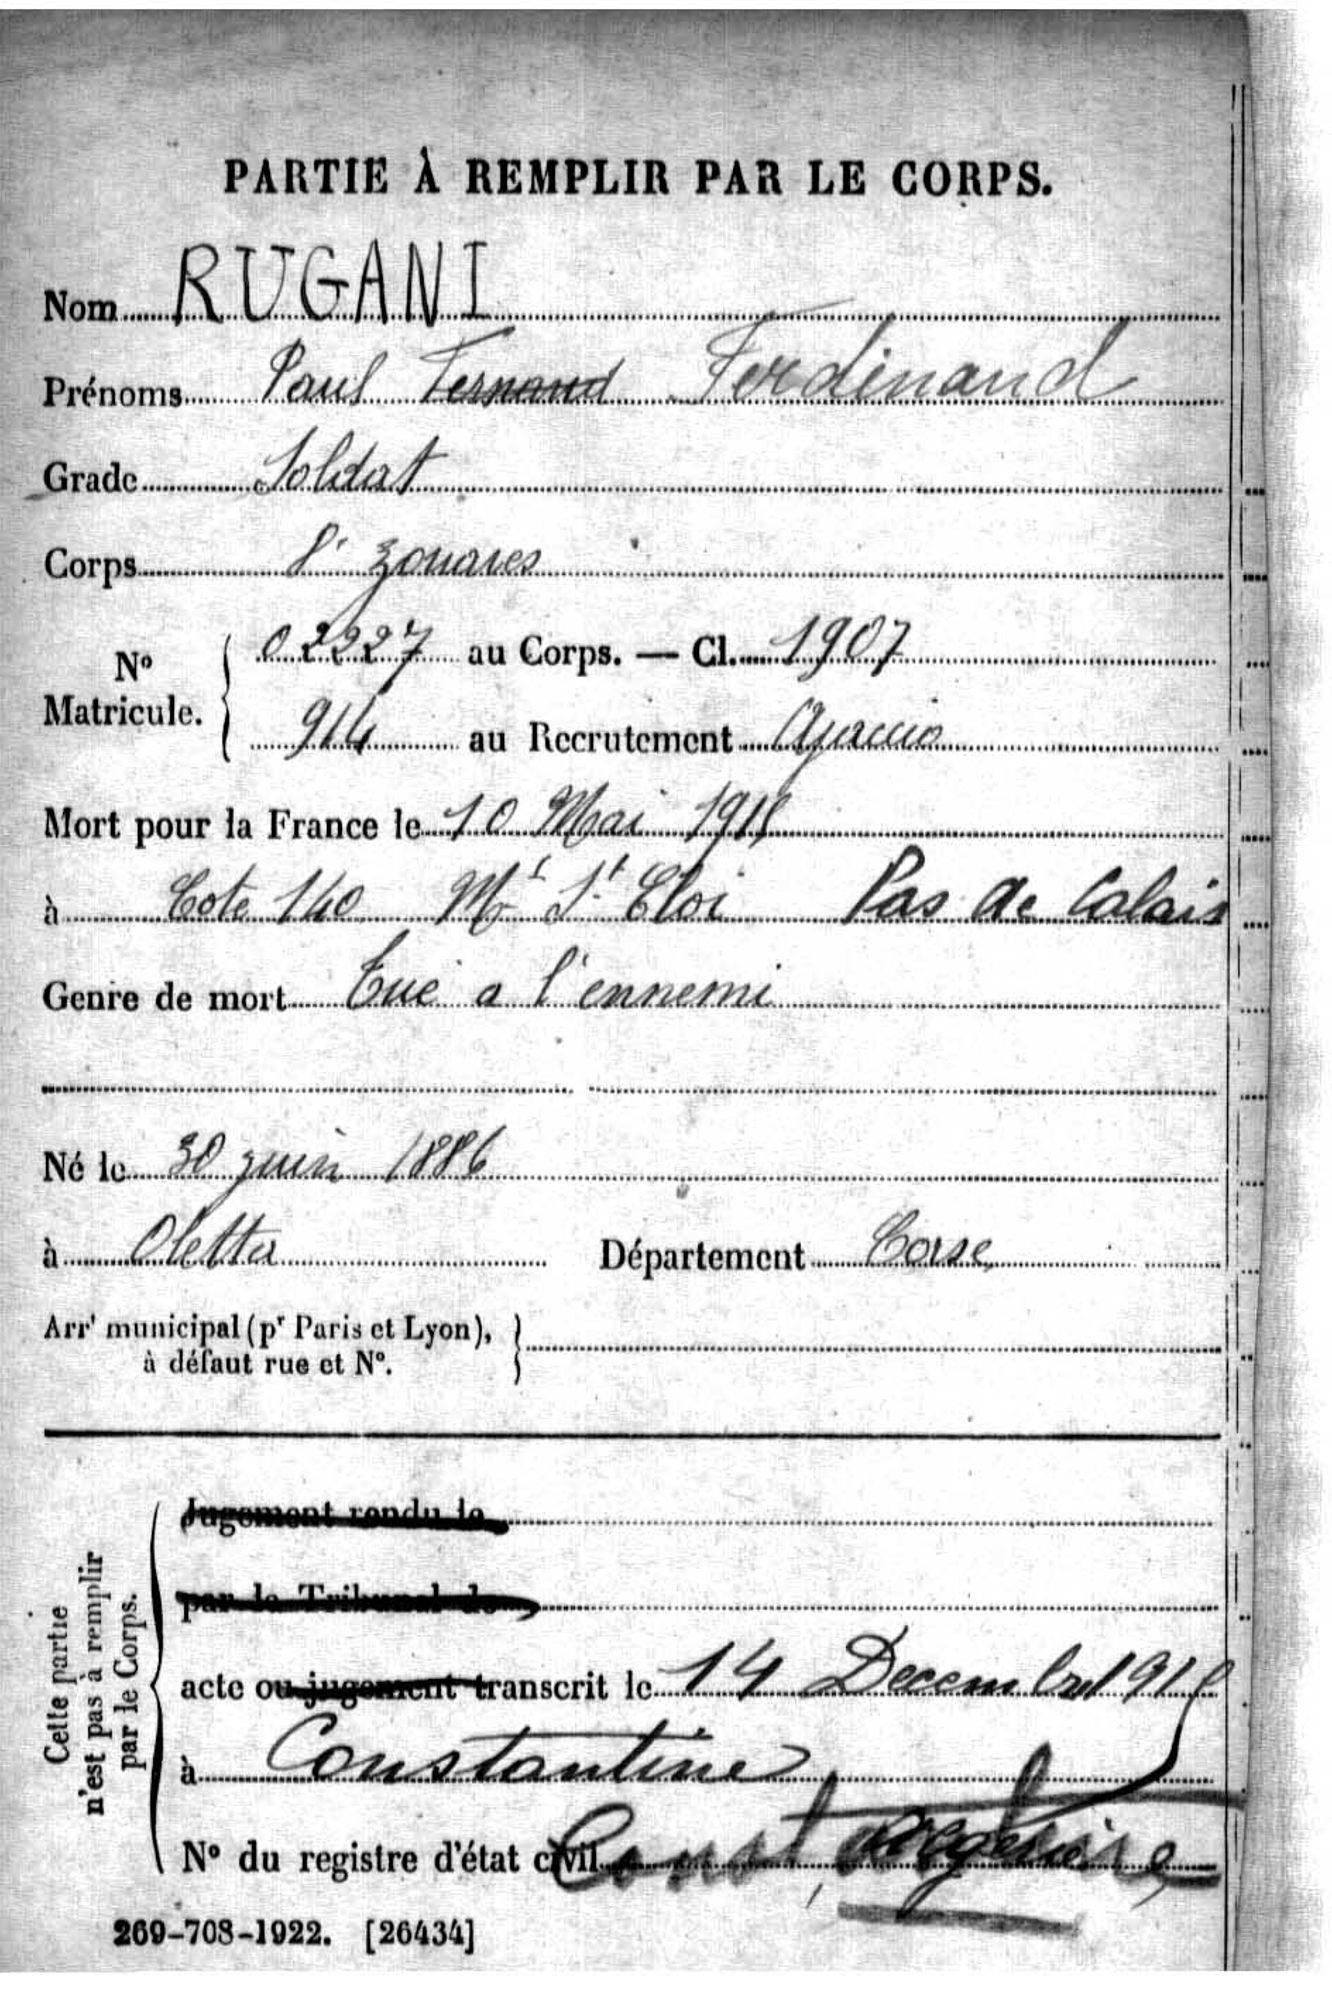 PARTIE À REMPLIR PAR LE CORPS.
Nom RUGANI
Prénoms Paul Fernand Ferdinand
Grade Soldat
Corps 8e zouaves
No Matricule. { 02227 au Corps. — Cl. 1907
914 au Recrutement Ajaccio
Mort pour la France le 10 Mai 1915
à Cote 140 Mt St Eloi Pas de Calais
Genre de mort Tué a l'ennemi
Né le 30 juin 1886
à Oletta Département Corse
Arrt municipal (pr Paris et Lyon),
à défaut rue et No.
Cette partie
n'est pas à remplir
par le Corps.
Jugement rendu le
par le Tribunal de
acte ou jugement transcrit le 14 Decembre 1915
à Constantine
No du registre d'état civil Constantine
Algérie
269-708-1922. [26434]